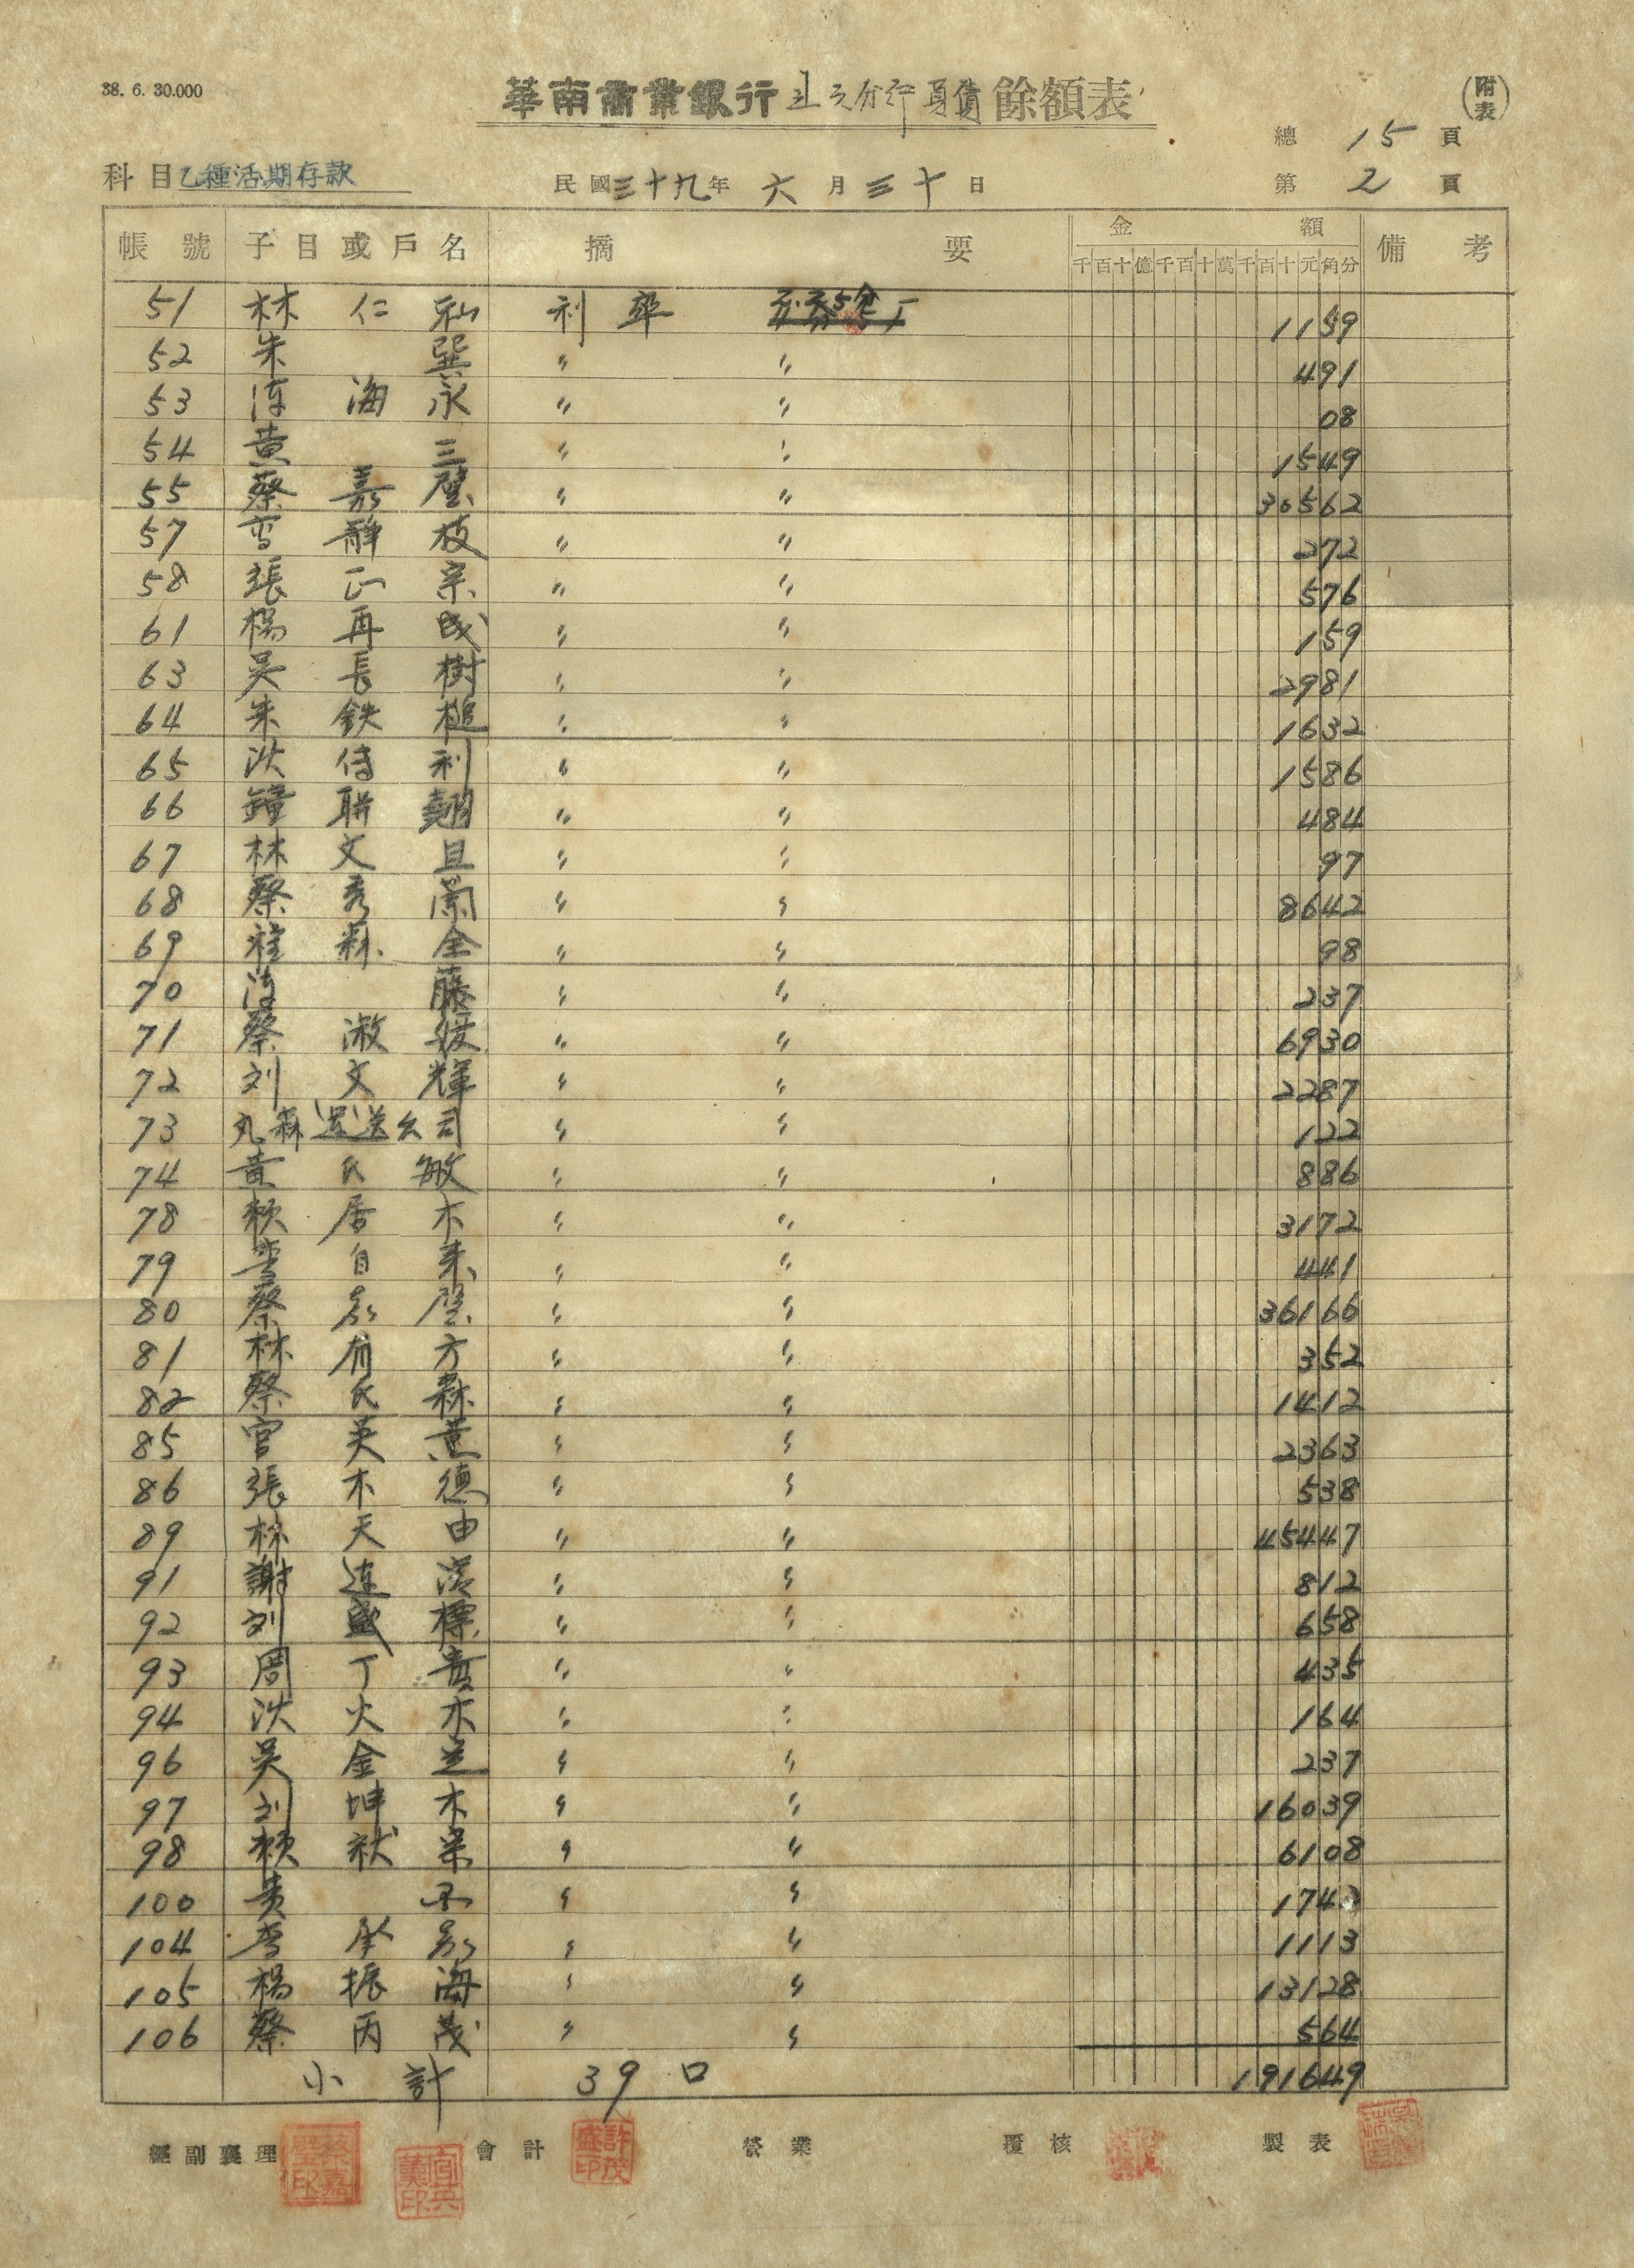 38. 6. 30.000
華南商業銀行 分行 負債 餘額表
(附表)
總 15 頁
科目 乙種活期存款
民國三十九年 六 月 三十 日
第 2 頁
帳號 子目或戶名 摘要 金額 備考
千百十億千百十萬千百十元角分
51 林仁 利率 1159
52 朱巽 〃 〃 491
53 陳海永 〃 〃 08
54 黃三 〃 〃 1549
55 蔡嘉璧 〃 〃 30562
57 靜枝 〃 〃 272
58 張正宗 〃 〃 576
61 楊再成 〃 〃 159
63 吳長樹 〃 〃 2981
64 朱鉄槌 〃 〃 1632
65 利 〃 〃 1586
66 鐘聯翹 〃 〃 484
67 林文旦 〃 〃 97
68 蔡秀蘭 〃 〃 8642
69 森全 〃 〃 98
70 陳藤 〃 〃 237
71 蔡淑媛 〃 〃 6930
72 刘文輝 〃 〃 2287
73 丸森運送公司 〃 〃 122
74 黃氏敏 〃 〃 886
78 賴居木 〃 〃 3172
79 李自来 〃 〃 441
80 蔡嘉璧 〃 〃 36166
81 林有方 〃 〃 352
82 蔡氏森 〃 〃 1412
85 官英薫 〃 〃 2363
86 張木德 〃 〃 538
89 林天由 〃 〃 45447
91 謝連 〃 〃 812
92 刘盛標 〃 〃 658
93 周丁貴 〃 〃 435
94 火木 〃 〃 164
96 吳金 〃 〃 237
97 刘坤木 〃 〃 16039
98 賴 〃 〃 6108
100 黃 〃 〃 174
104 李 〃 〃 1113
105 楊振海 〃 〃 13128
106 蔡丙茂 〃 〃 564
小計 39口 191649
經副襄理 會計 營業 覆核 製表
蔡嘉璧印
官英薫印
許茂盛印